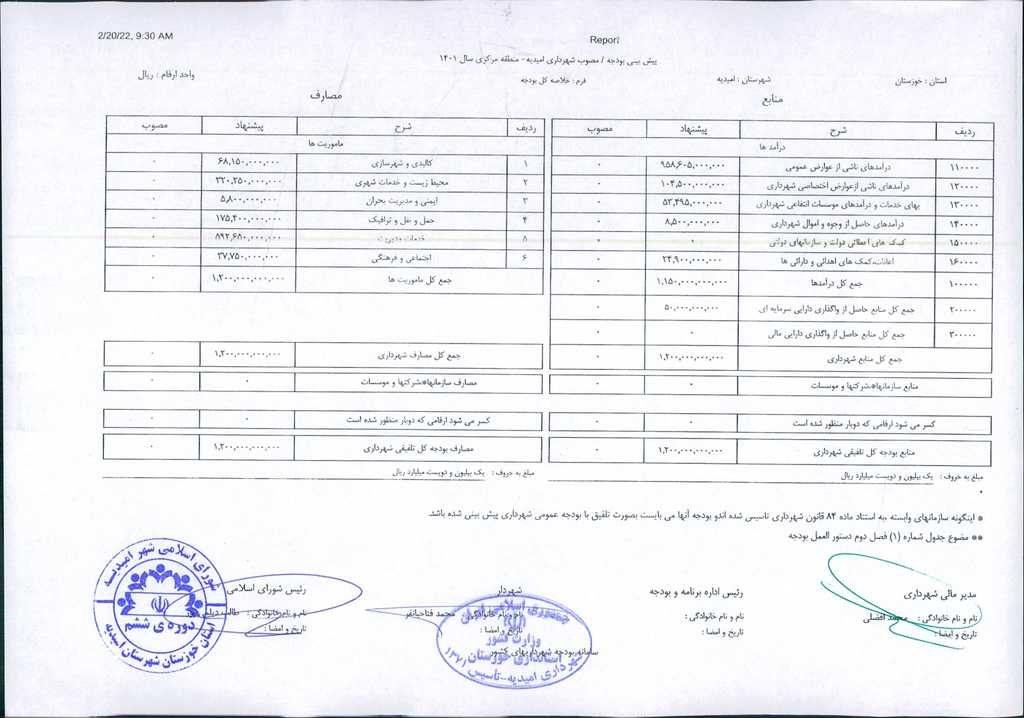 2/20/22, 9:30 AM
Report
پیش بینی بودجه / مصوب شهرداری امیدیه - منطقه مرکزی سال ۱۴۰۱
استان : خوزستان شهرستان : امیدیه فرم : خلاصه کل بودجه واحد ارقام : ریال
منابع
ردیف شرح پیشنهاد مصوب
درآمد ها
۱۱۰۰۰۰ درآمدهای ناشی از عوارض عمومی ۹۵۸,۶۰۵,۰۰۰,۰۰۰ ۰
۱۲۰۰۰۰ درآمدهای ناشی ازعوارض اختصاصی شهرداری ۱۰۴,۵۰۰,۰۰۰,۰۰۰ ۰
۱۳۰۰۰۰ بهای خدمات و درآمدهای موسسات انتفاعی شهرداری ۵۳,۴۹۵,۰۰۰,۰۰۰ ۰
۱۴۰۰۰۰ درآمدهای حاصل از وجوه و اموال شهرداری ۸,۵۰۰,۰۰۰,۰۰۰ ۰
۱۵۰۰۰۰ کمک های اعطائی دولت و سازمانهای دولتی ۰ ۰
۱۶۰۰۰۰ اعانات،کمک های اهدائی و دارائی ها ۲۴,۹۰۰,۰۰۰,۰۰۰ ۰
۱۰۰۰۰۰ جمع کل درآمدها ۱,۱۵۰,۰۰۰,۰۰۰,۰۰۰ ۰
۲۰۰۰۰۰ جمع کل منابع حاصل از واگذاری دارایی سرمایه ای ۵۰,۰۰۰,۰۰۰,۰۰۰ ۰
۳۰۰۰۰۰ جمع کل منابع حاصل از واگذاری دارایی مالی ۰ ۰
جمع کل منابع شهرداری ۱,۲۰۰,۰۰۰,۰۰۰,۰۰۰ ۰
منابع سازمانها*شرکتها و موسسات ۰ ۰
کسر می شود ارقامی که دوبار منظور شده است ۰ ۰
منابع بودجه کل تلفیقی شهرداری ۱,۲۰۰,۰۰۰,۰۰۰,۰۰۰ ۰
مبلغ به حروف : یک بیلیون و دویست میلیارد ریال
مصارف
ردیف شرح پیشنهاد مصوب
ماموریت ها
۱ کالبدی و شهرسازی ۶۸,۱۵۰,۰۰۰,۰۰۰ ۰
۲ محیط زیست و خدمات شهری ۳۲۰,۲۵۰,۰۰۰,۰۰۰ ۰
۳ ایمنی و مدیریت بحران ۵,۸۰۰,۰۰۰,۰۰۰ ۰
۴ حمل و نقل و ترافیک ۱۷۵,۴۰۰,۰۰۰,۰۰۰ ۰
خدمات مدیریت ۰
۶ اجتماعی و فرهنگی ۳۷,۷۵۰,۰۰۰,۰۰۰ ۰
جمع کل ماموریت ها ۱,۲۰۰,۰۰۰,۰۰۰,۰۰۰ ۰
جمع کل مصارف شهرداری ۱,۲۰۰,۰۰۰,۰۰۰,۰۰۰ ۰
مصارف سازمانها*شرکتها و موسسات ۰ ۰
کسر می شود ارقامی که دوبار منظور شده است ۰ ۰
مصارف بودجه کل تلفیقی شهرداری ۱,۲۰۰,۰۰۰,۰۰۰,۰۰۰ ۰
مبلغ به حروف : یک بیلیون و دویست میلیارد ریال
* اینگونه سازمانهای وابسته ،به استناد ماده ۸۴ قانون شهرداری تاسیس شده اندو بودجه آنها می بایست بصورت تلفیق با بودجه عمومی شهرداری پیش بینی شده باشد.
** مضوع جدول شماره (۱) فصل دوم دستور العمل بودجه
مدیر مالی شهرداری رئیس اداره برنامه و بودجه شهردار رئیس شورای اسلامی
نام و نام خانوادگی : محمد افضلی نام و نام خانوادگی : نام و نام خانوادگی : محمد فتاحیانفر نام و نام خانوادگی :
تاریخ و امضا : تاریخ و امضا : تاریخ و امضا : تاریخ و امضا :
سامانه بودجه شهرداریهای کشور
جمهوری اسلامی ایران
وزارت کشور
استانداری خوزستان
شهرداری امیدیه - تأسیس ۱۳۷۱
شورای اسلامی شهر امیدیه
دوره ی ششم
استان خوزستان شهرستان امیدیه